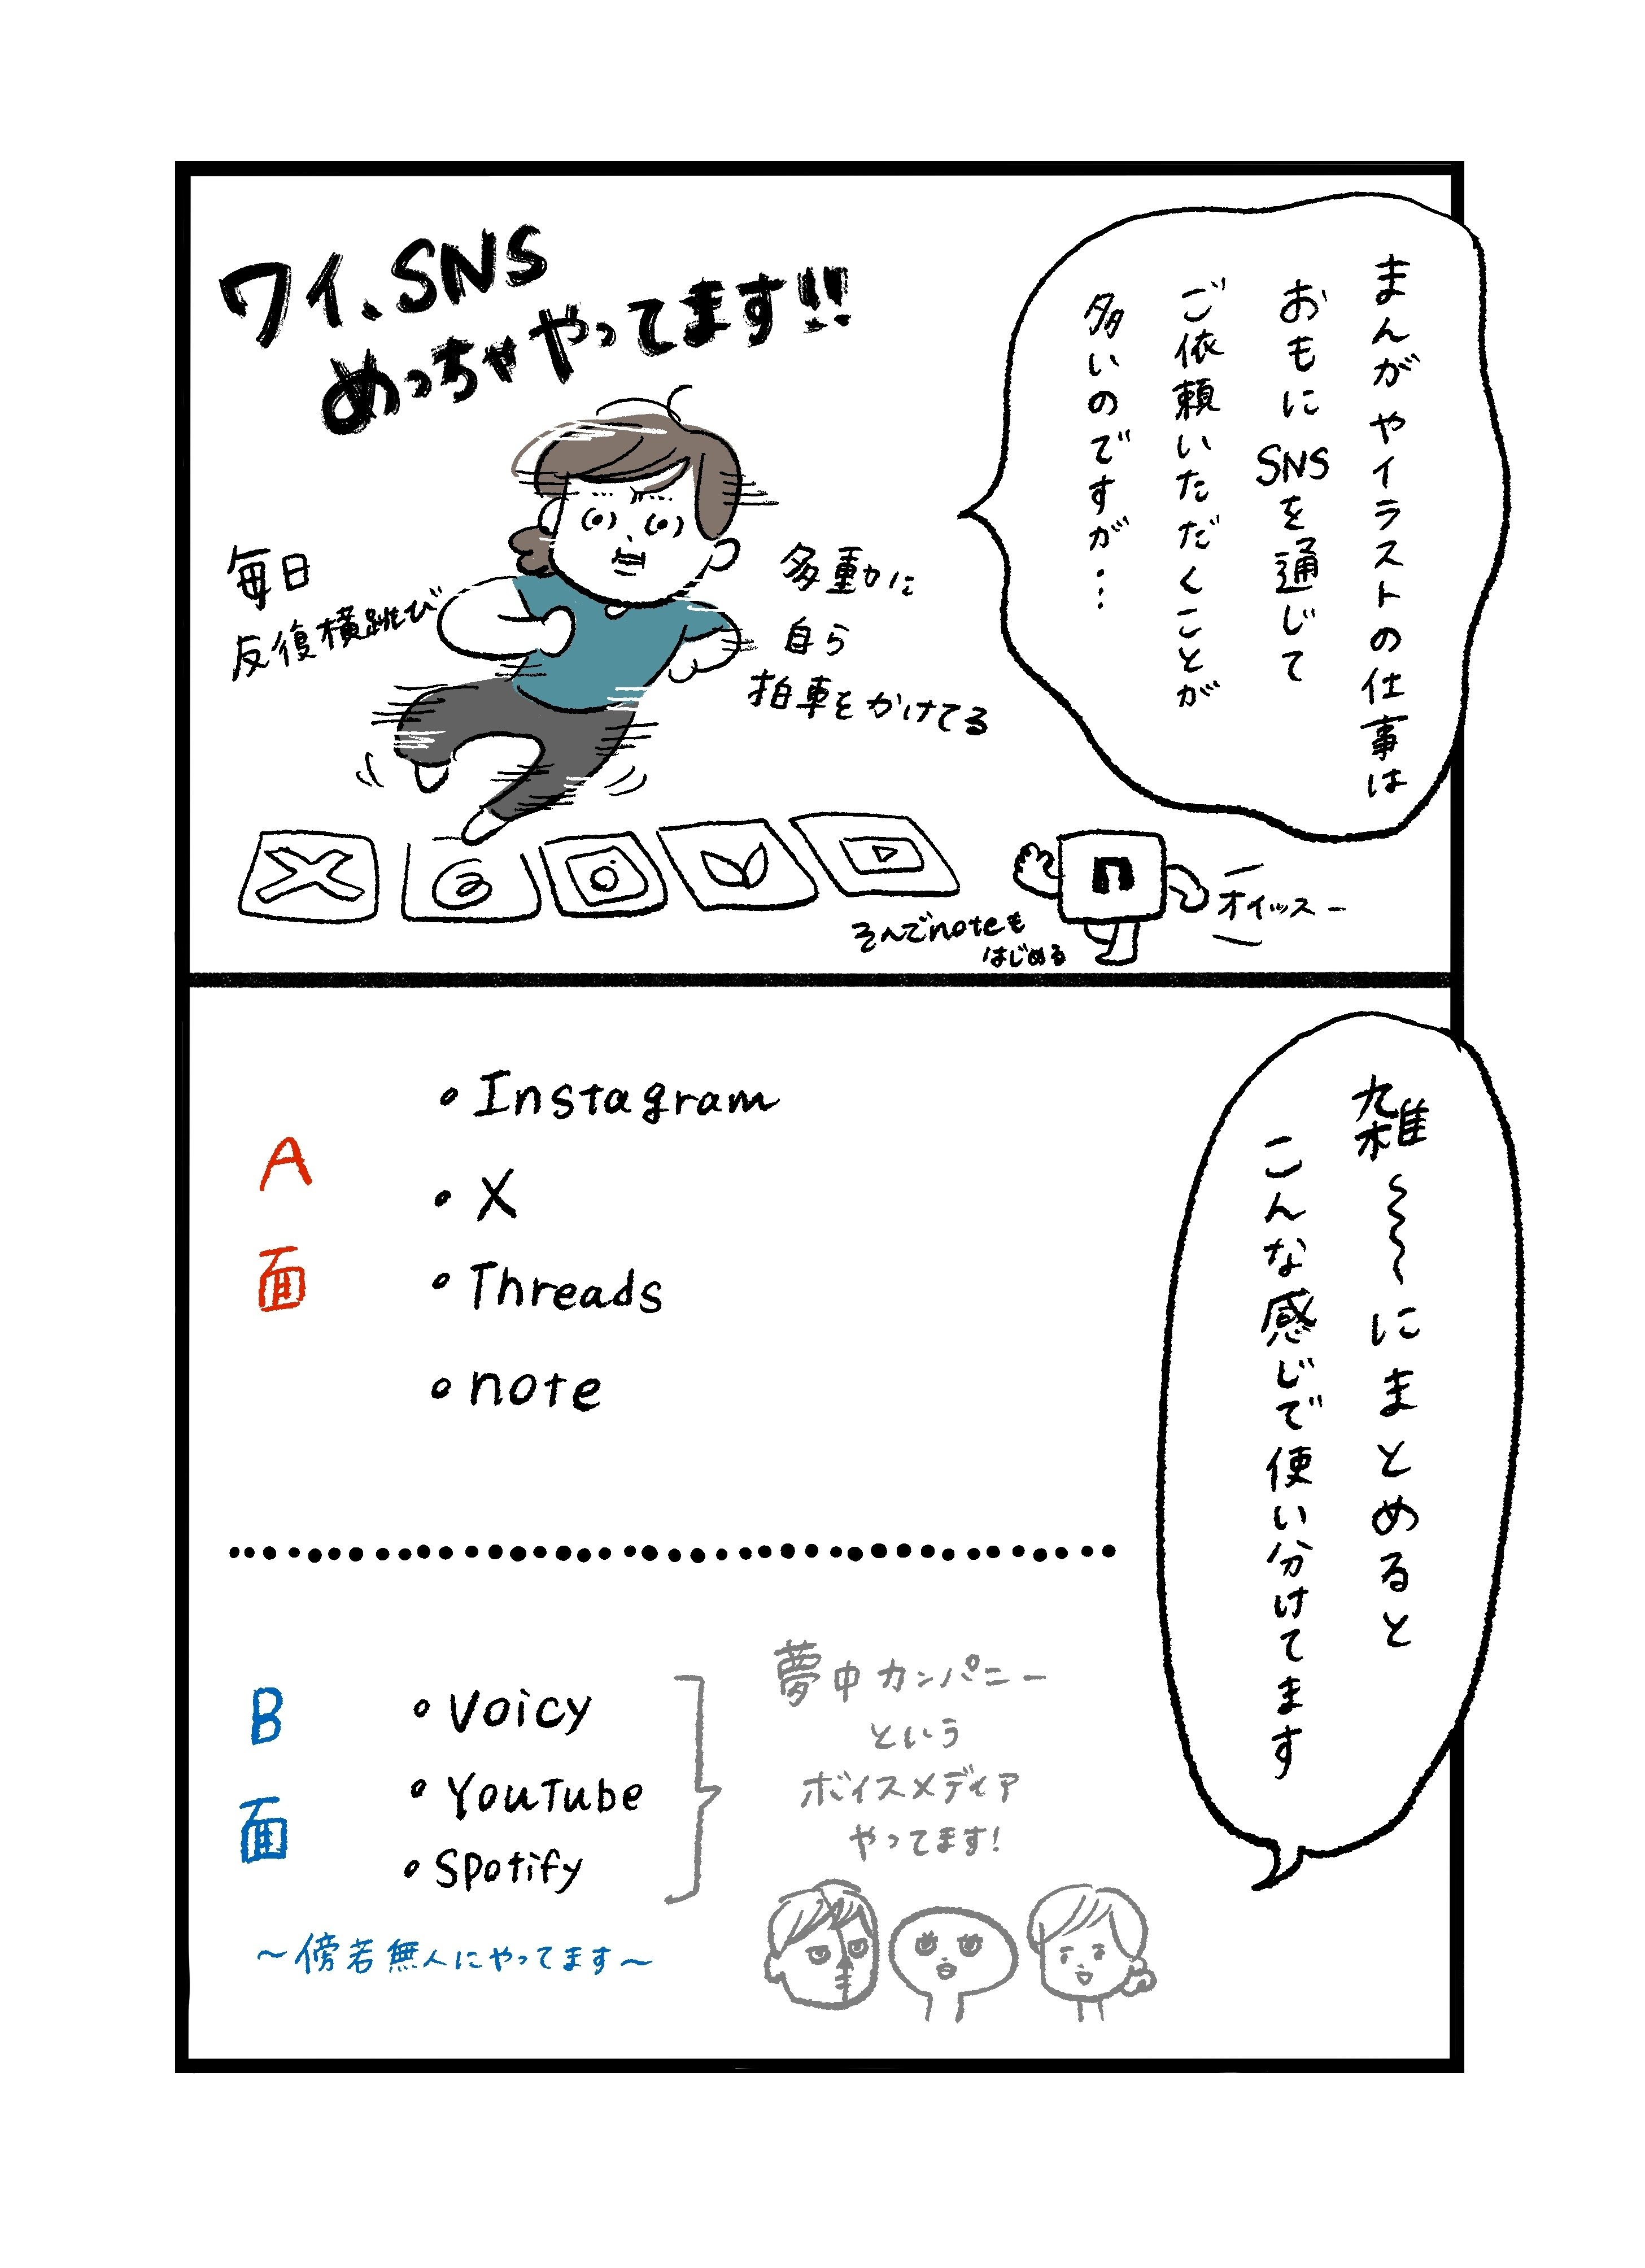 まんがやイラストの仕事は
おもにSNSを通じて
ご依頼いただくことが
多いのですが…
ワイ、SNS
めっちゃやってます!!
毎日
反復横跳び
多動に
自ら
拍車をかけてる
X
そんでnoteも
はじめる
n
オイッスー
雑〜〜〜にまとめると
こんな感じで使い分けてます
A面
・Instagram
・X
・Threads
・note
B面
・Voicy
・YouTube
・Spotify
夢中カンパニー
という
ボイスメディア
やってます!
〜傍若無人にやってます〜